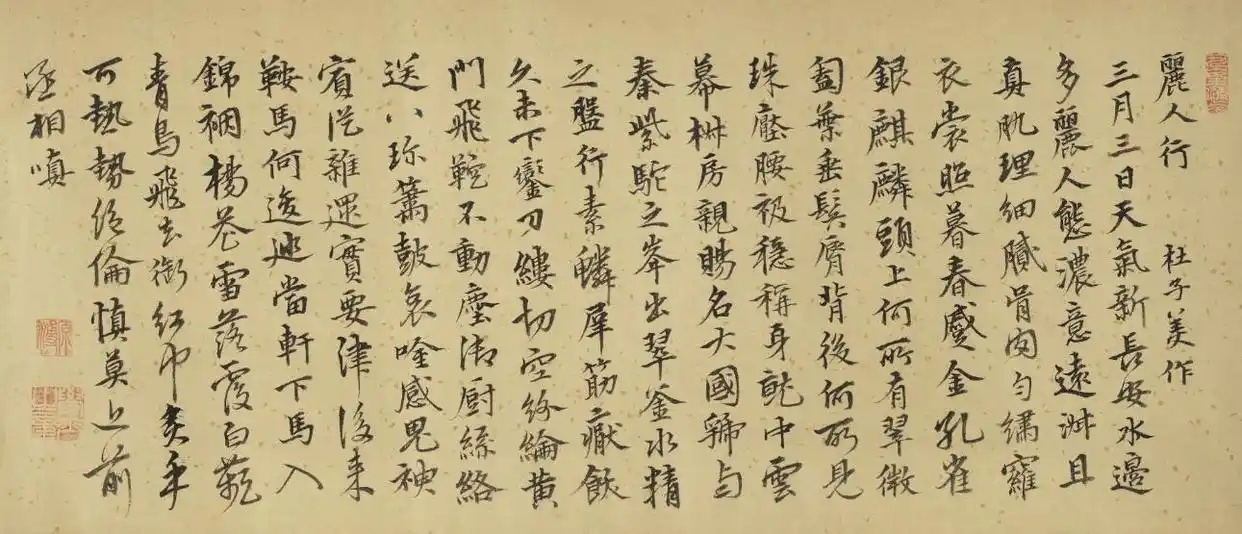 麗人行 杜子美作
三月三日天氣新長安水邊
多麗人態濃意遠淑且
真肌理細膩骨肉勻繡羅
衣裳照暮春蹙金孔雀
銀麒麟頭上何所有翠微
㔩葉垂鬢脣背後何所見
珠壓腰衱穩稱身就中雲
幕椒房親賜名大國虢与
秦紫駝之峯出翠釜水精
之盤行素鱗犀筯厭飫
久未下鑾刀縷切空紛綸黃
門飛鞚不動塵御厨絲絡
送八珍簫鼓哀吟感鬼神
賓從雜遝實要津後来
鞍馬何逡巡當軒下馬入
錦裀楊花雪落覆白蘋
青鳥飛去銜紅巾炙手
可熱勢絕倫慎莫近前
丞相嗔